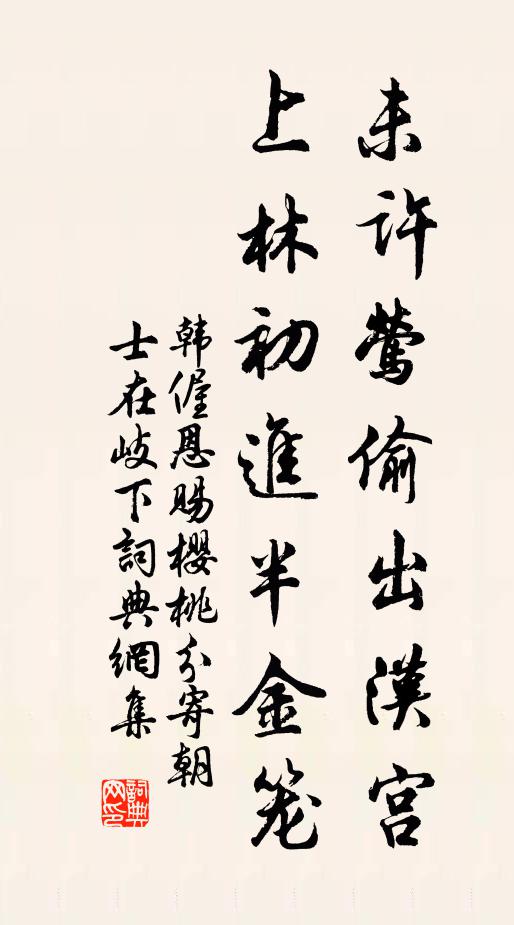 未许莺偷出漢宫
上林初進半金笼
韩偓恩赐櫻桃分寄朝
士在岐下詞典網集
詞典
网印